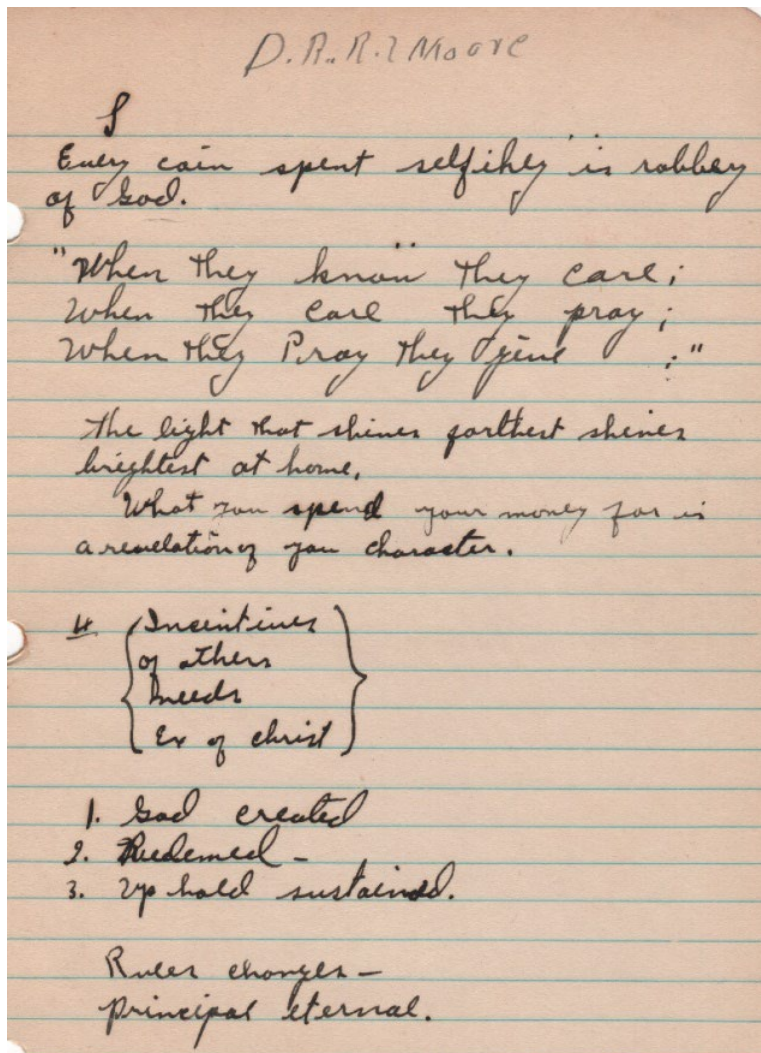 D.R.R.L Moore
S
Every coin spent selfihly is robbey
of God.
"When they know they care;
When they care they pray;
When they Pray they give ;"
The light that shines farthest shines
brightest at home.
What you spend your money for is
a revelation of you character.
4 Incentives
of others
needs
Ex of christ
1. God created
2. Redemed –
3. Up hold sustained.
Rules changes –
Principal eternal.